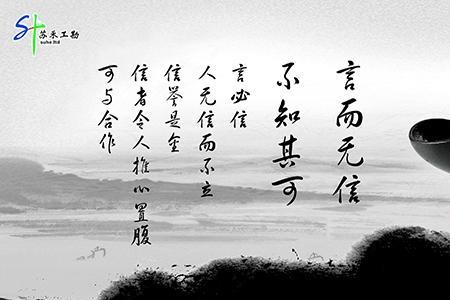 苏禾工勘
suhe itd
言而无信
不知其可
言必信
人无信而不立
信誉是金
信者令人推心置腹
可与合作